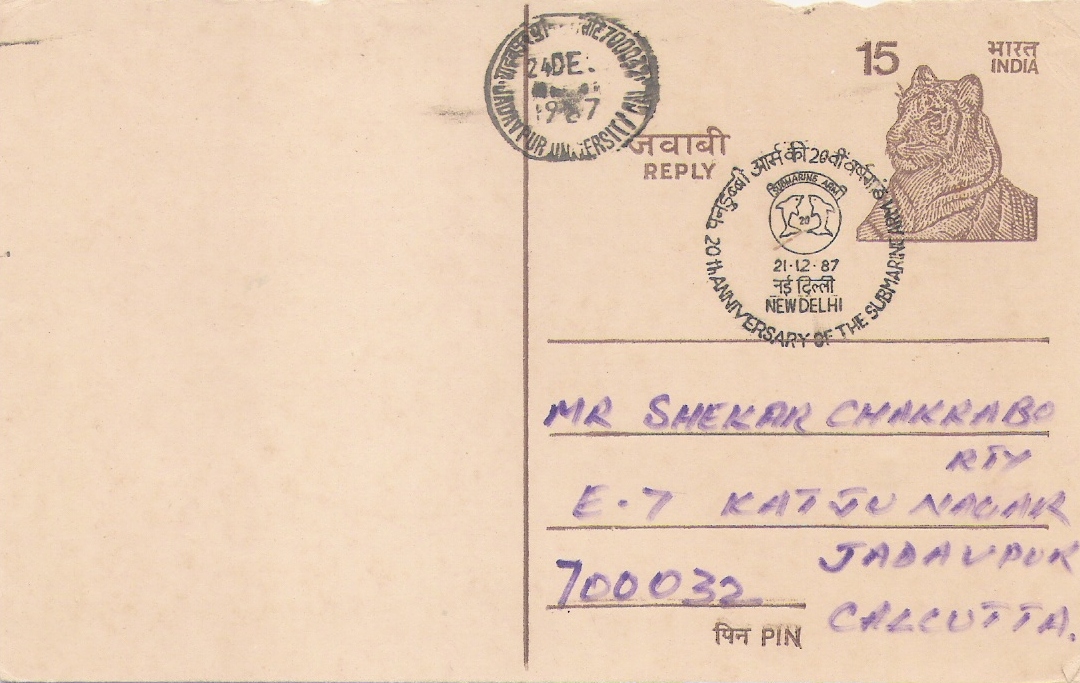 15
भारत
INDIA
24 DE
1987
700032
JADAVPUR UNIVERSITY CAL
जवाबी
REPLY
पनडुब्बी आर्म की 20वीं वर्षगांठ
SUBMARINE ARM
20
21·12·87
नई दिल्ली
NEW DELHI
20th ANNIVERSARY OF THE SUBMARINE ARM
MR SHEKAR CHAKRABO
RTY
E-7 KATJU NAGAR
JADAVPUR
700032
CALCUTTA.
पिन PIN